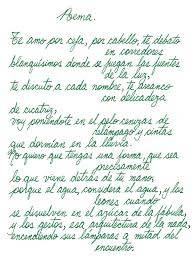 Poema.
Te amo por ceja, por cabello, te debato
en corredores
blanquísimos donde se juegan las fuentes
de la luz,
te discuto a cada nombre, te arranco
con delicadeza
de cicatriz,
voy poniéndote en el pelo cenizas de
relámpago y cintas
que dormían en la lluvia.
No quiero que tengas una forma, que seas
precisamente
lo que viene detrás de tu mano,
porque el agua, considera el agua, y los
leones cuando
se disuelven en el azúcar de la fábula,
y los gestos, esa arquitectura de la nada,
encendiendo sus lámparas a mitad del
encuentro.